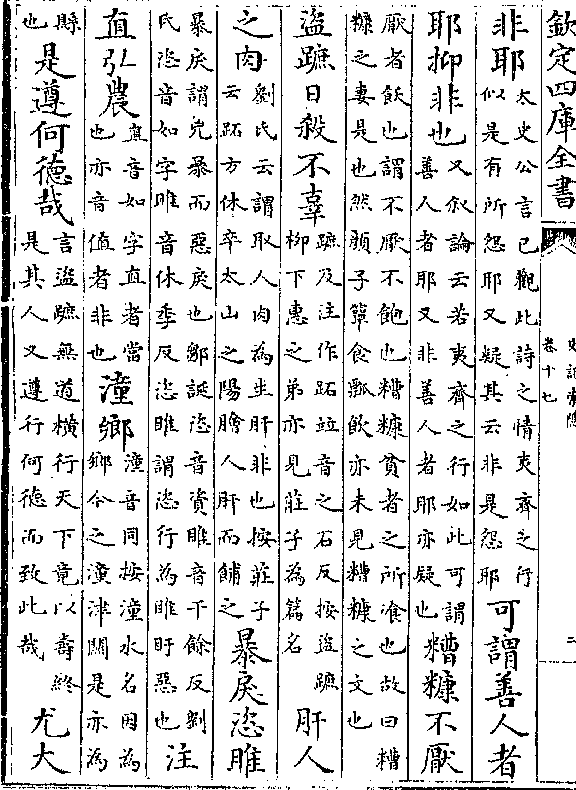 欽定四庫全書
史記索隱
卷十七
二
非耶太史公言已觀此詩之情夷齊之行似是有所怨耶又疑其云非是怨耶可謂善人者
耶抑非也又叙論云若夷齊之行如此可謂善人者耶又非善人者耶亦疑也糟糠不厭
厭者飫也謂不厭不飽也糟糠貧者之所飡也故曰糟糠之妻是也然顔子簞食瓢飲亦未見糟糠之文也
盗蹠日殺不辜蹠及注作跖竝音之石反按盗蹠柳下惠之弟亦見莊子為篇名肝人
之肉劉氏云謂取人肉為生肝非也按莊子云跖方休卒太山之陽膾人肝而餔之暴戾恣睢
暴戾謂兇暴而惡戾也鄒誕恣音資睢音千餘反劉氏恣音如字睢音休季反恣睢謂恣行為睢盱惡也注
直弘農直音如字直者當也亦音值者非也潼鄉潼音同按潼水名因為鄉今之潼津關是亦為
縣也是遵何德哉言盗蹠無道橫行天下竟以壽終是其人又遵行何德而致此哉尤大